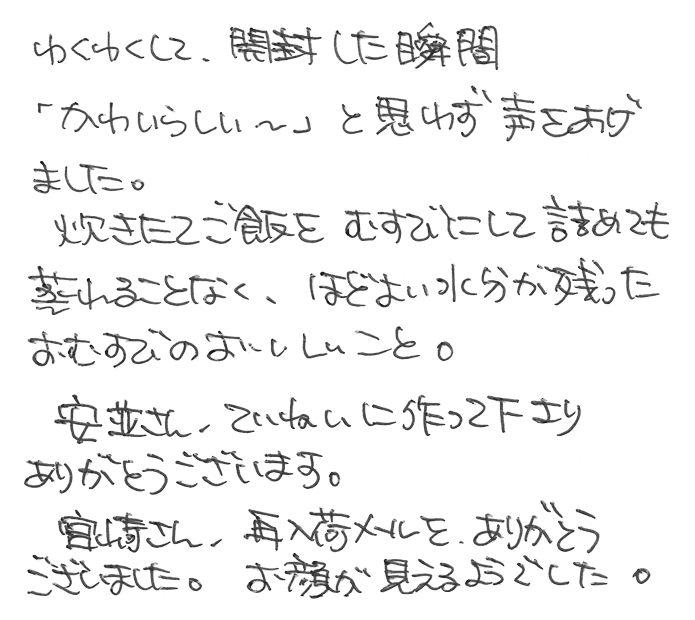 わくわくして、開封した瞬間
「かわいらしい〜」と思わず声をあげ
ました。
炊きたてご飯を むすびにして詰めても
蒸れることなく、ほどよい水分が残った
おむすびのおいしいこと。
安並さん、ていねいに作って下さり
ありがとうございます。
宮崎さん、再入荷メールを、ありがとう
ございました。 お顔が見えるようでした。